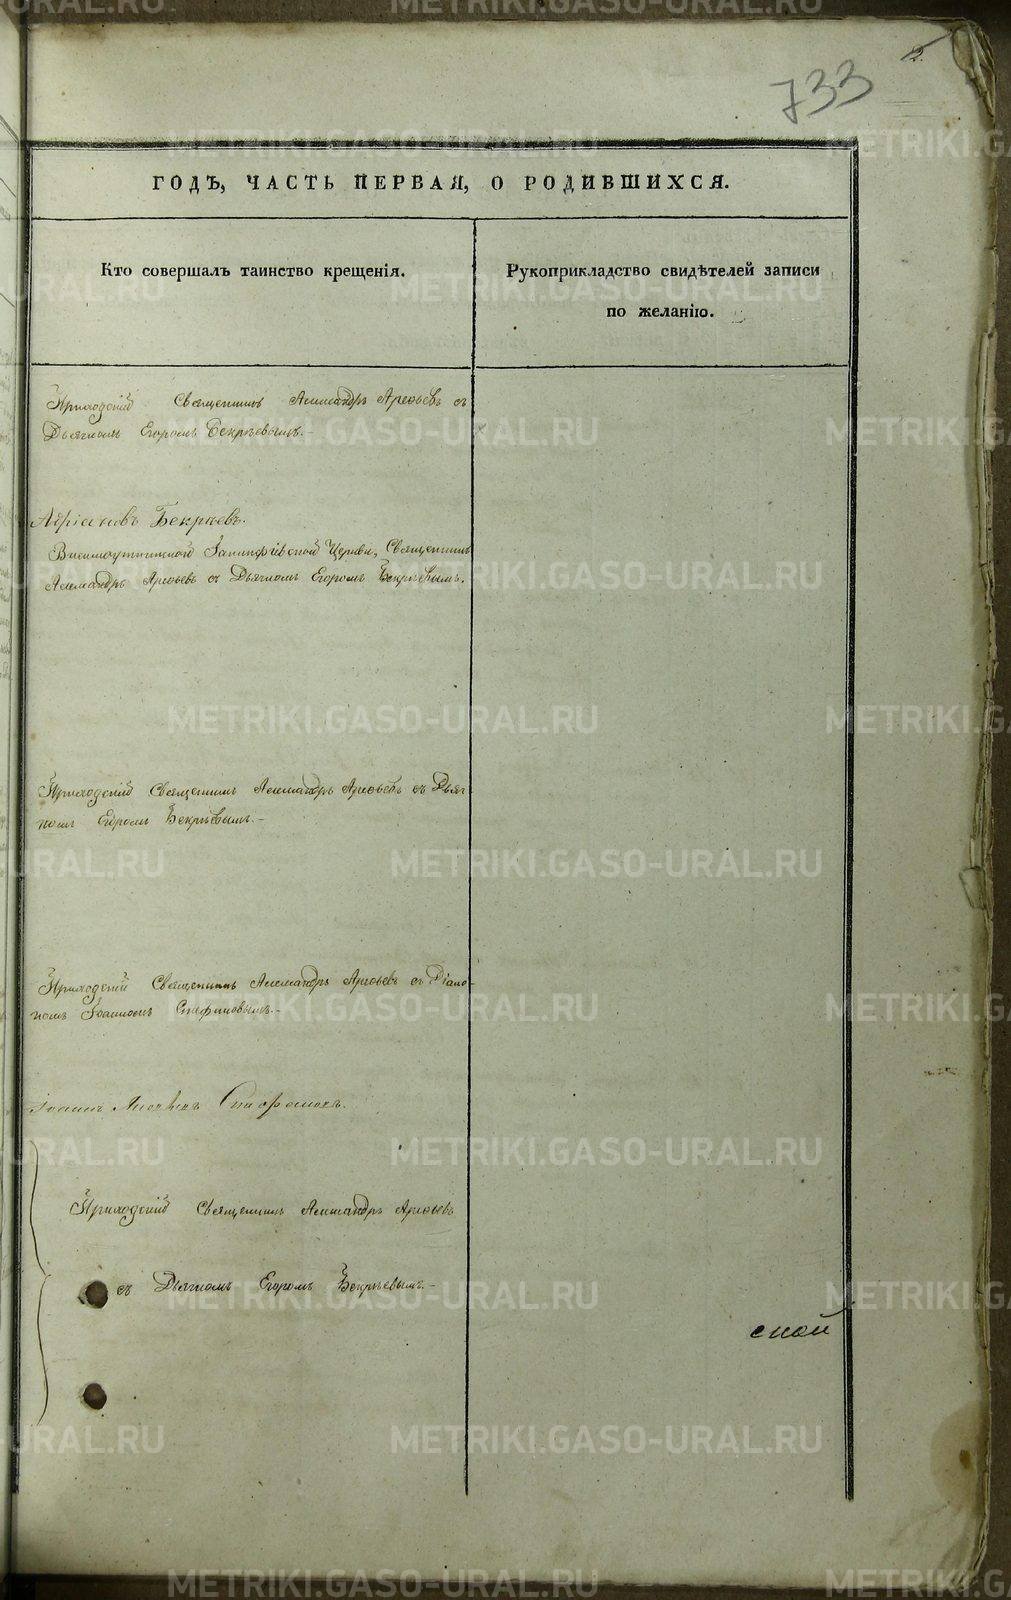 733
2.
ГОДЪ, ЧАСТЬ ПЕРВАЯ, О РОДИВШИХСЯ.
Кто совершалъ таинство крещенія.
Рукоприкладство свидѣтелей записи
по желанію.
Приходскій Священникъ Александръ Арефьевъ съ
Дьячкомъ Егоромъ Бекрѣевымъ.-
Бекрѣевъ.
Церкви, Священникъ
Александръ Арефьевъ съ Дьячкомъ Егоромъ Бекрѣевымъ.
Приходскій Священникъ Александръ Арефьевъ съ Дьяч-
комъ Егоромъ Бекрѣевымъ.-
Приходскій Священникъ Александръ Арефьевъ съ Діако-
номъ Іоанномъ
Іоаннъ
Приходскій Священникъ Александръ Арефьевъ
съ Дьячкомъ Егоромъ Бекрѣевымъ.-
ской
METRIKI.GASO-URAL.RU